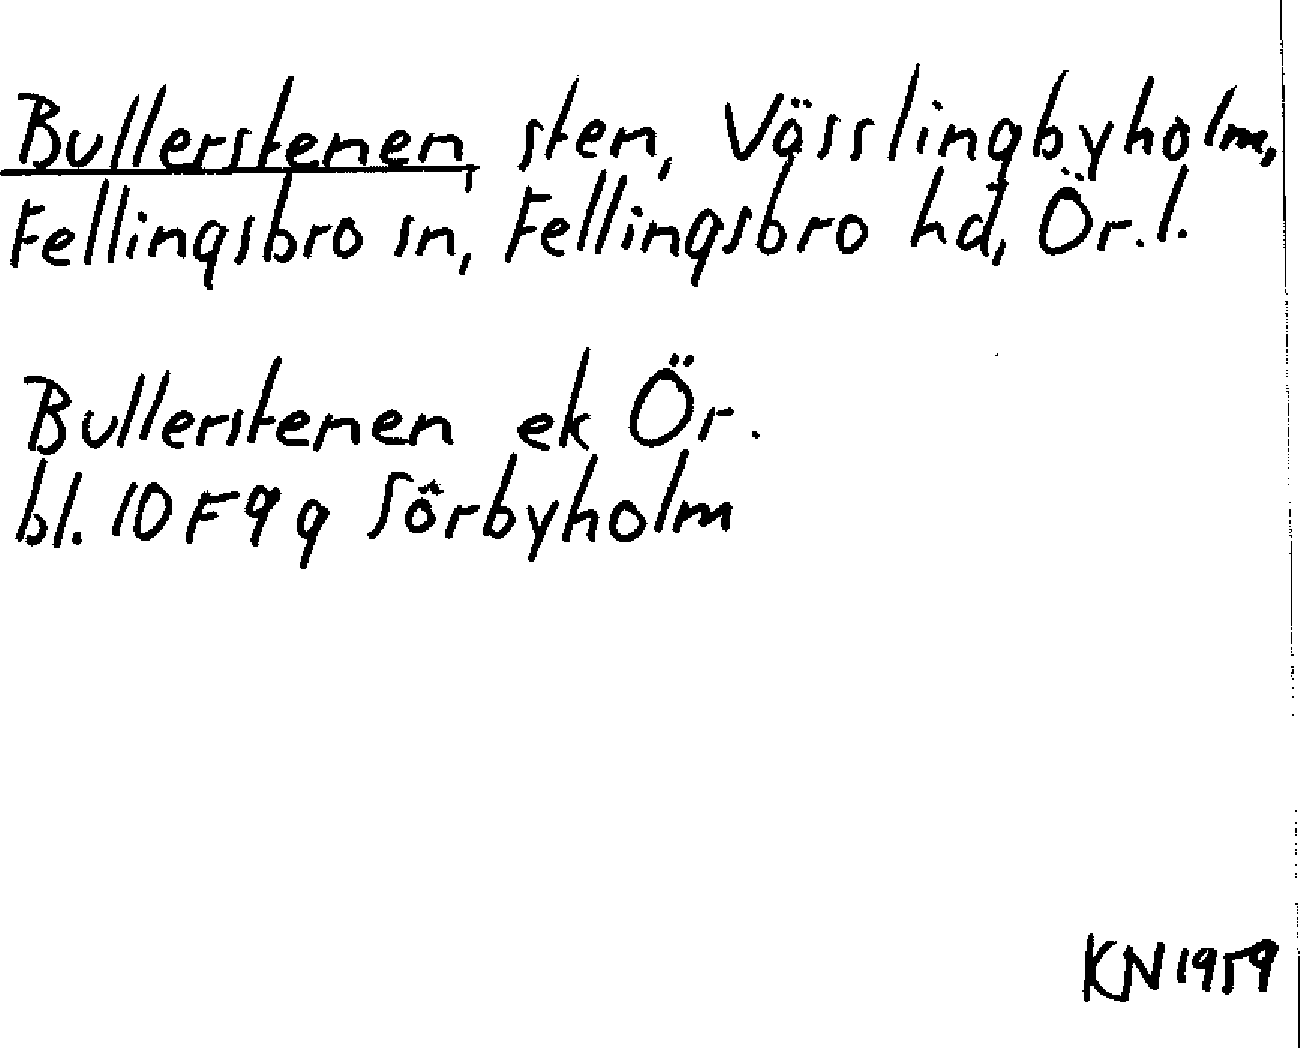 Bullerstenen, sten, Vässlingbyholm,
Fellingsbro sn, Fellingsbro hd, Ör.l.
Bullerstenen ek Ör.
bl. 10 F 9 g Sörbyholm
KN 1959